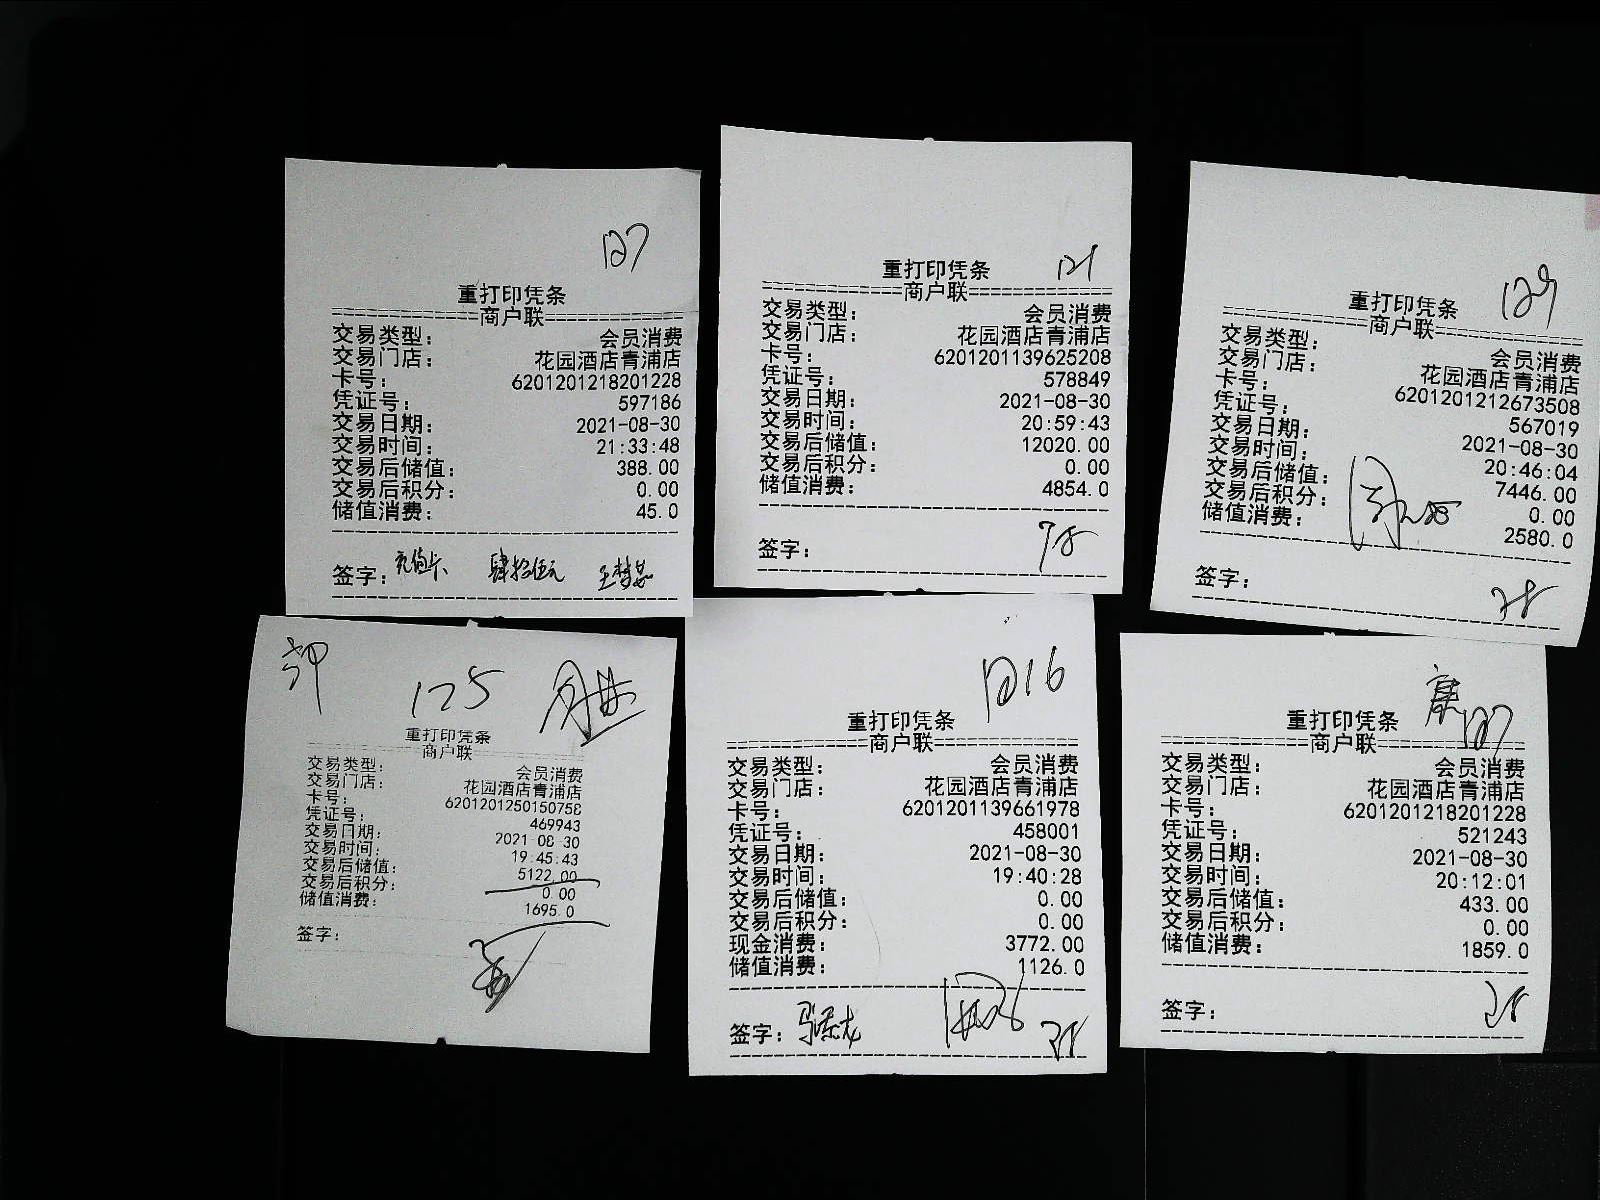 127
重打印凭条
商户联
交易类型： 会员消费
交易门店： 花园酒店青浦店
卡号： 6201201218201228
凭证号： 597186
交易日期： 2021-08-30
交易时间： 21:33:48
交易后储值： 388.00
交易后积分： 0.00
储值消费： 45.0
签字： 充值卡 肆拾伍元
121
重打印凭条
商户联
交易类型： 会员消费
交易门店： 花园酒店青浦店
卡号： 6201201139625208
凭证号： 578849
交易日期： 2021-08-30
交易时间： 20:59:43
交易后储值： 12020.00
交易后积分： 0.00
储值消费： 4854.0
签字：
129
重打印凭条
商户联
交易类型： 会员消费
交易门店： 花园酒店青浦店
卡号： 6201201212673508
凭证号： 567019
交易日期： 2021-08-30
交易时间： 20:46:04
交易后储值： 7446.00
交易后积分： 0.00
储值消费： 2580.0
签字：
125
重打印凭条
商户联
交易类型： 会员消费
交易门店： 花园酒店青浦店
卡号： 6201201250150758
凭证号： 469943
交易日期： 2021 08 30
交易时间： 19:45:43
交易后储值： 5122.00
交易后积分： 0.00
储值消费： 1695.0
签字：
重打印凭条
商户联
交易类型： 会员消费
交易门店： 花园酒店青浦店
卡号： 6201201139661978
凭证号： 458001
交易日期： 2021-08-30
交易时间： 19:40:28
交易后储值： 0.00
交易后积分： 0.00
现金消费： 3772.00
储值消费： 1126.0
签字：
127
重打印凭条
商户联
交易类型： 会员消费
交易门店： 花园酒店青浦店
卡号： 6201201218201228
凭证号： 521243
交易日期： 2021-08-30
交易时间： 20:12:01
交易后储值： 433.00
交易后积分： 0.00
储值消费： 1859.0
签字：